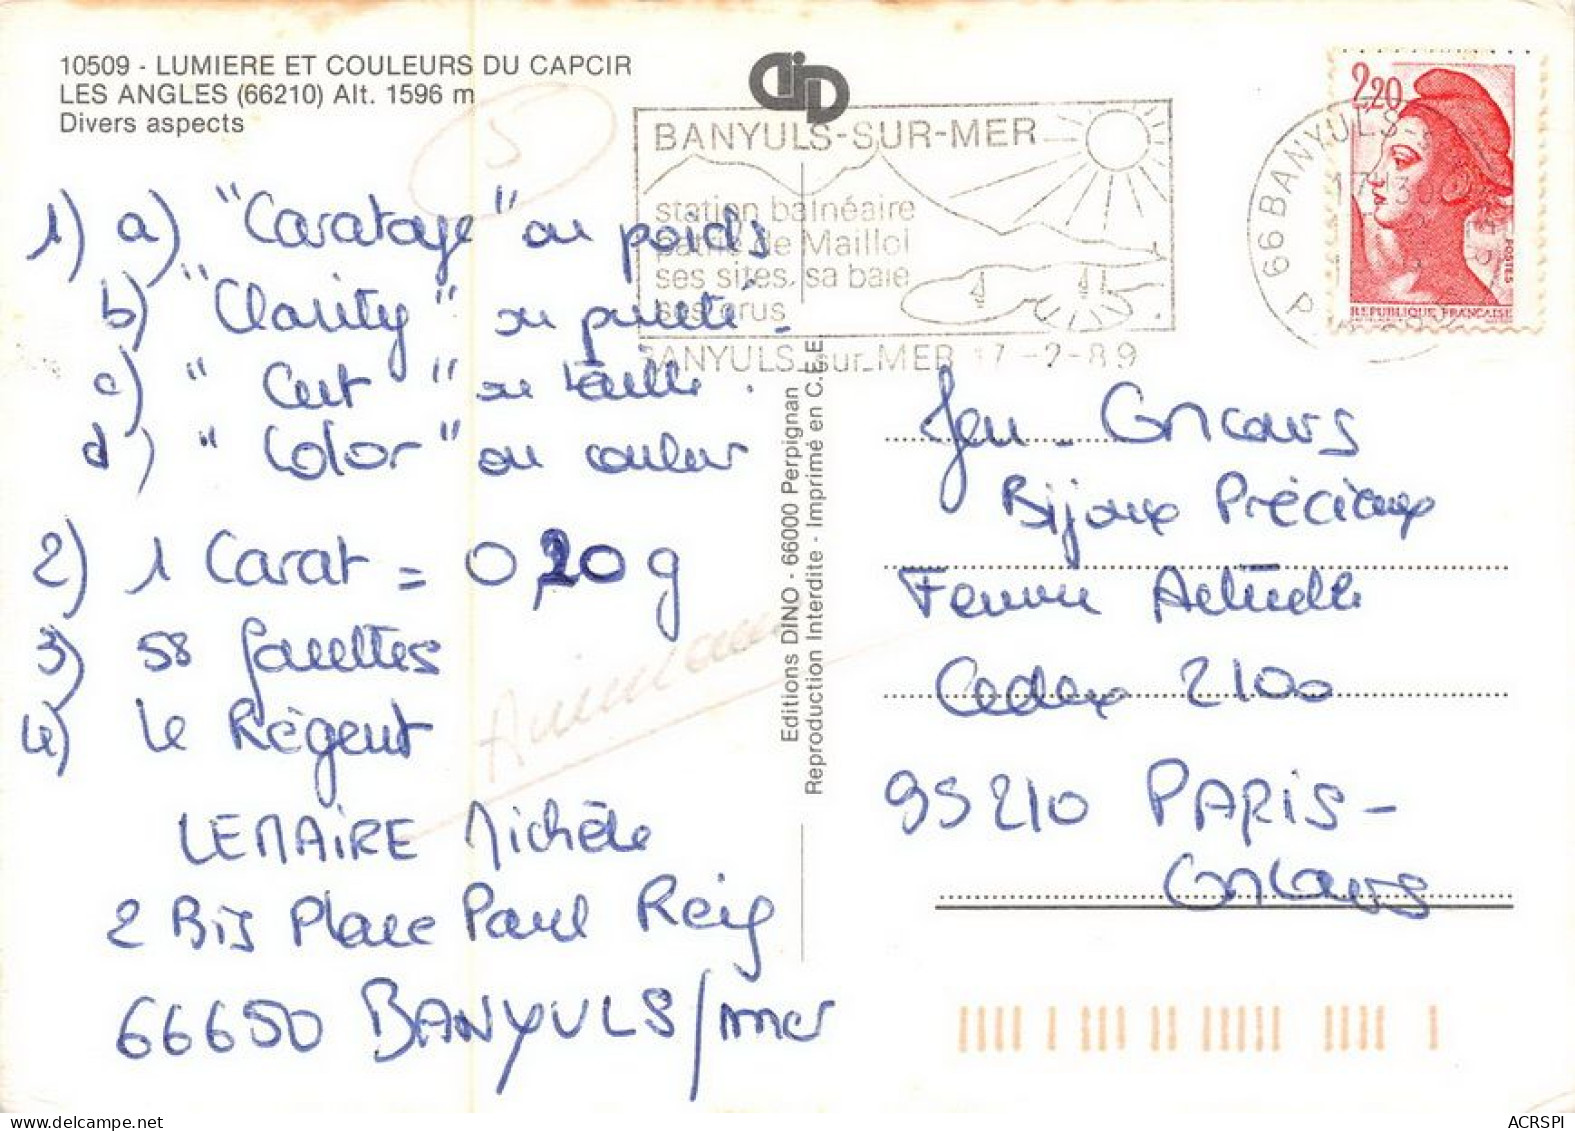 10509 - LUMIERE ET COULEURS DU CAPCIR
LES ANGLES (66210) Alt. 1596 m
Divers aspects
1) a) "Caratage" ou poids
b) "Clarity" ou pureté -
c) "Cut" ou taille.
d) "Color" ou couleur
2) 1 Carat = 0,20g
3) 58 facettes
4) Le Régent
LEMAIRE Michèle
2 Bis Place Paul Reig
66650 BANYULS/mer
5
Editions DINO - 66000 Perpignan
Reproduction Interdite - Imprimé en C.E.E
BANYULS-SUR-MER
station balnéaire
patrie de Maillol
ses sites, sa baie
ses crus
BANYULS sur MER 17-2-89
2,20
POSTES
REPUBLIQUE FRANCAISE
66 BANYULS-S
17 H30
Jeu - Concours
Bijoux Précieux
Femme Actuelle
Cedex 2100
95210 PARIS -
Concours
ACRSPI